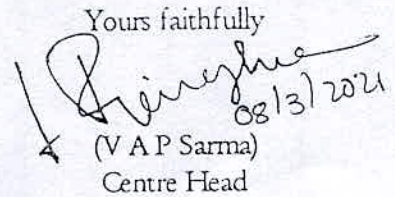 Yours faithfully
08/3/2021
(V A P Sarma)
Centre Head